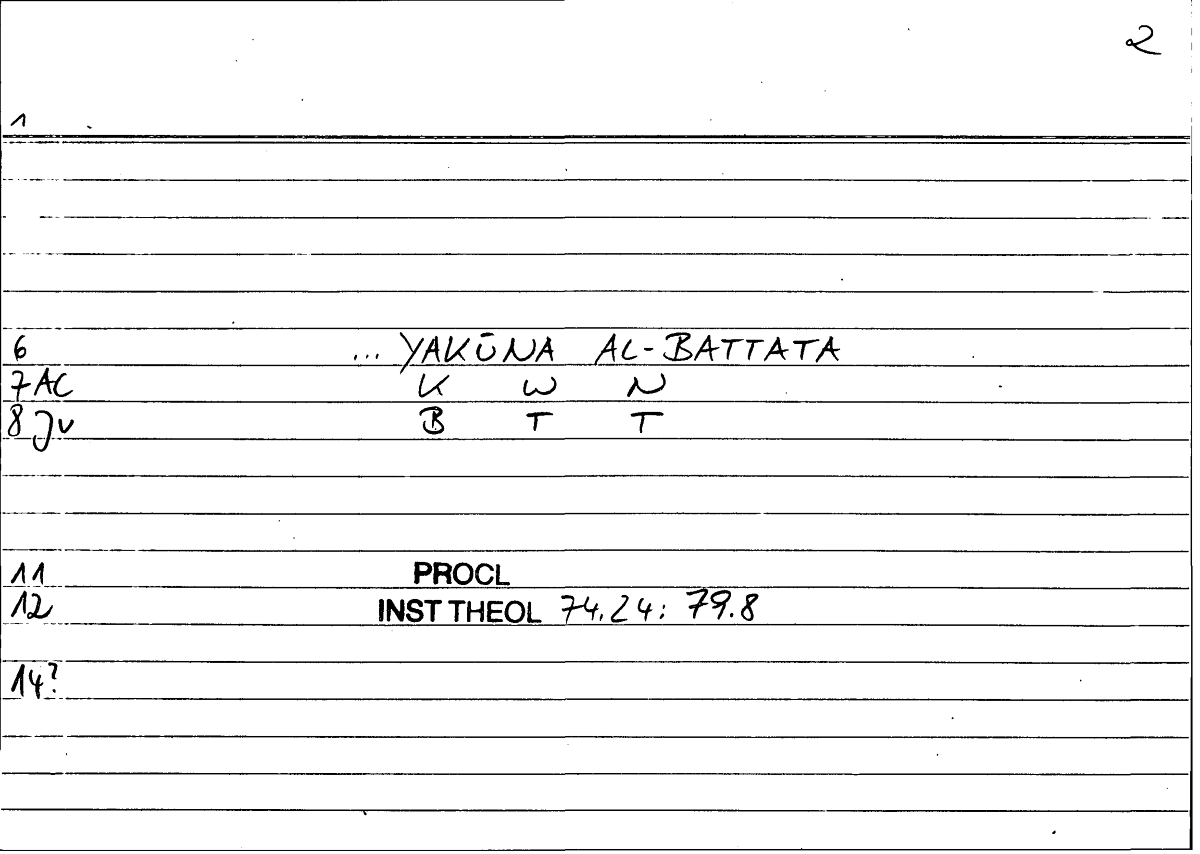 2
1
6 ... YAKŪNA AL-BATTATA
7 AC K W N
8 Jv B T T
11 PROCL
12 INST THEOL 74.24: 79.8
14?